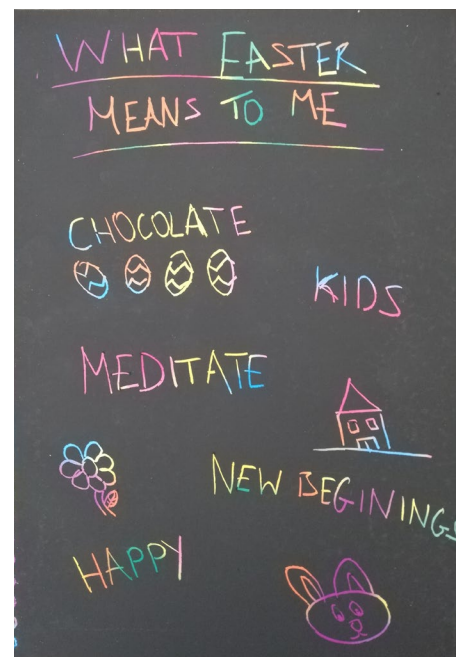 WHAT EASTER
MEANS TO ME
CHOCOLATE
KIDS
MEDITATE
NEW BEGININGS
HAPPY